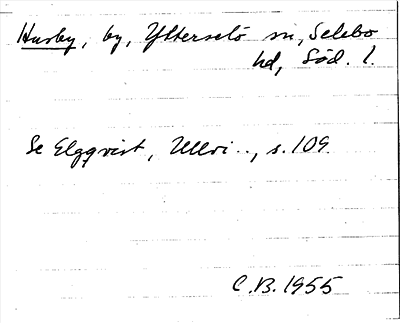 Husby, by, Ytterselö sn, Selebo
hd, Söd. l.
Se Elgqvist, Ullvi.., s. 109.
C.B. 1955